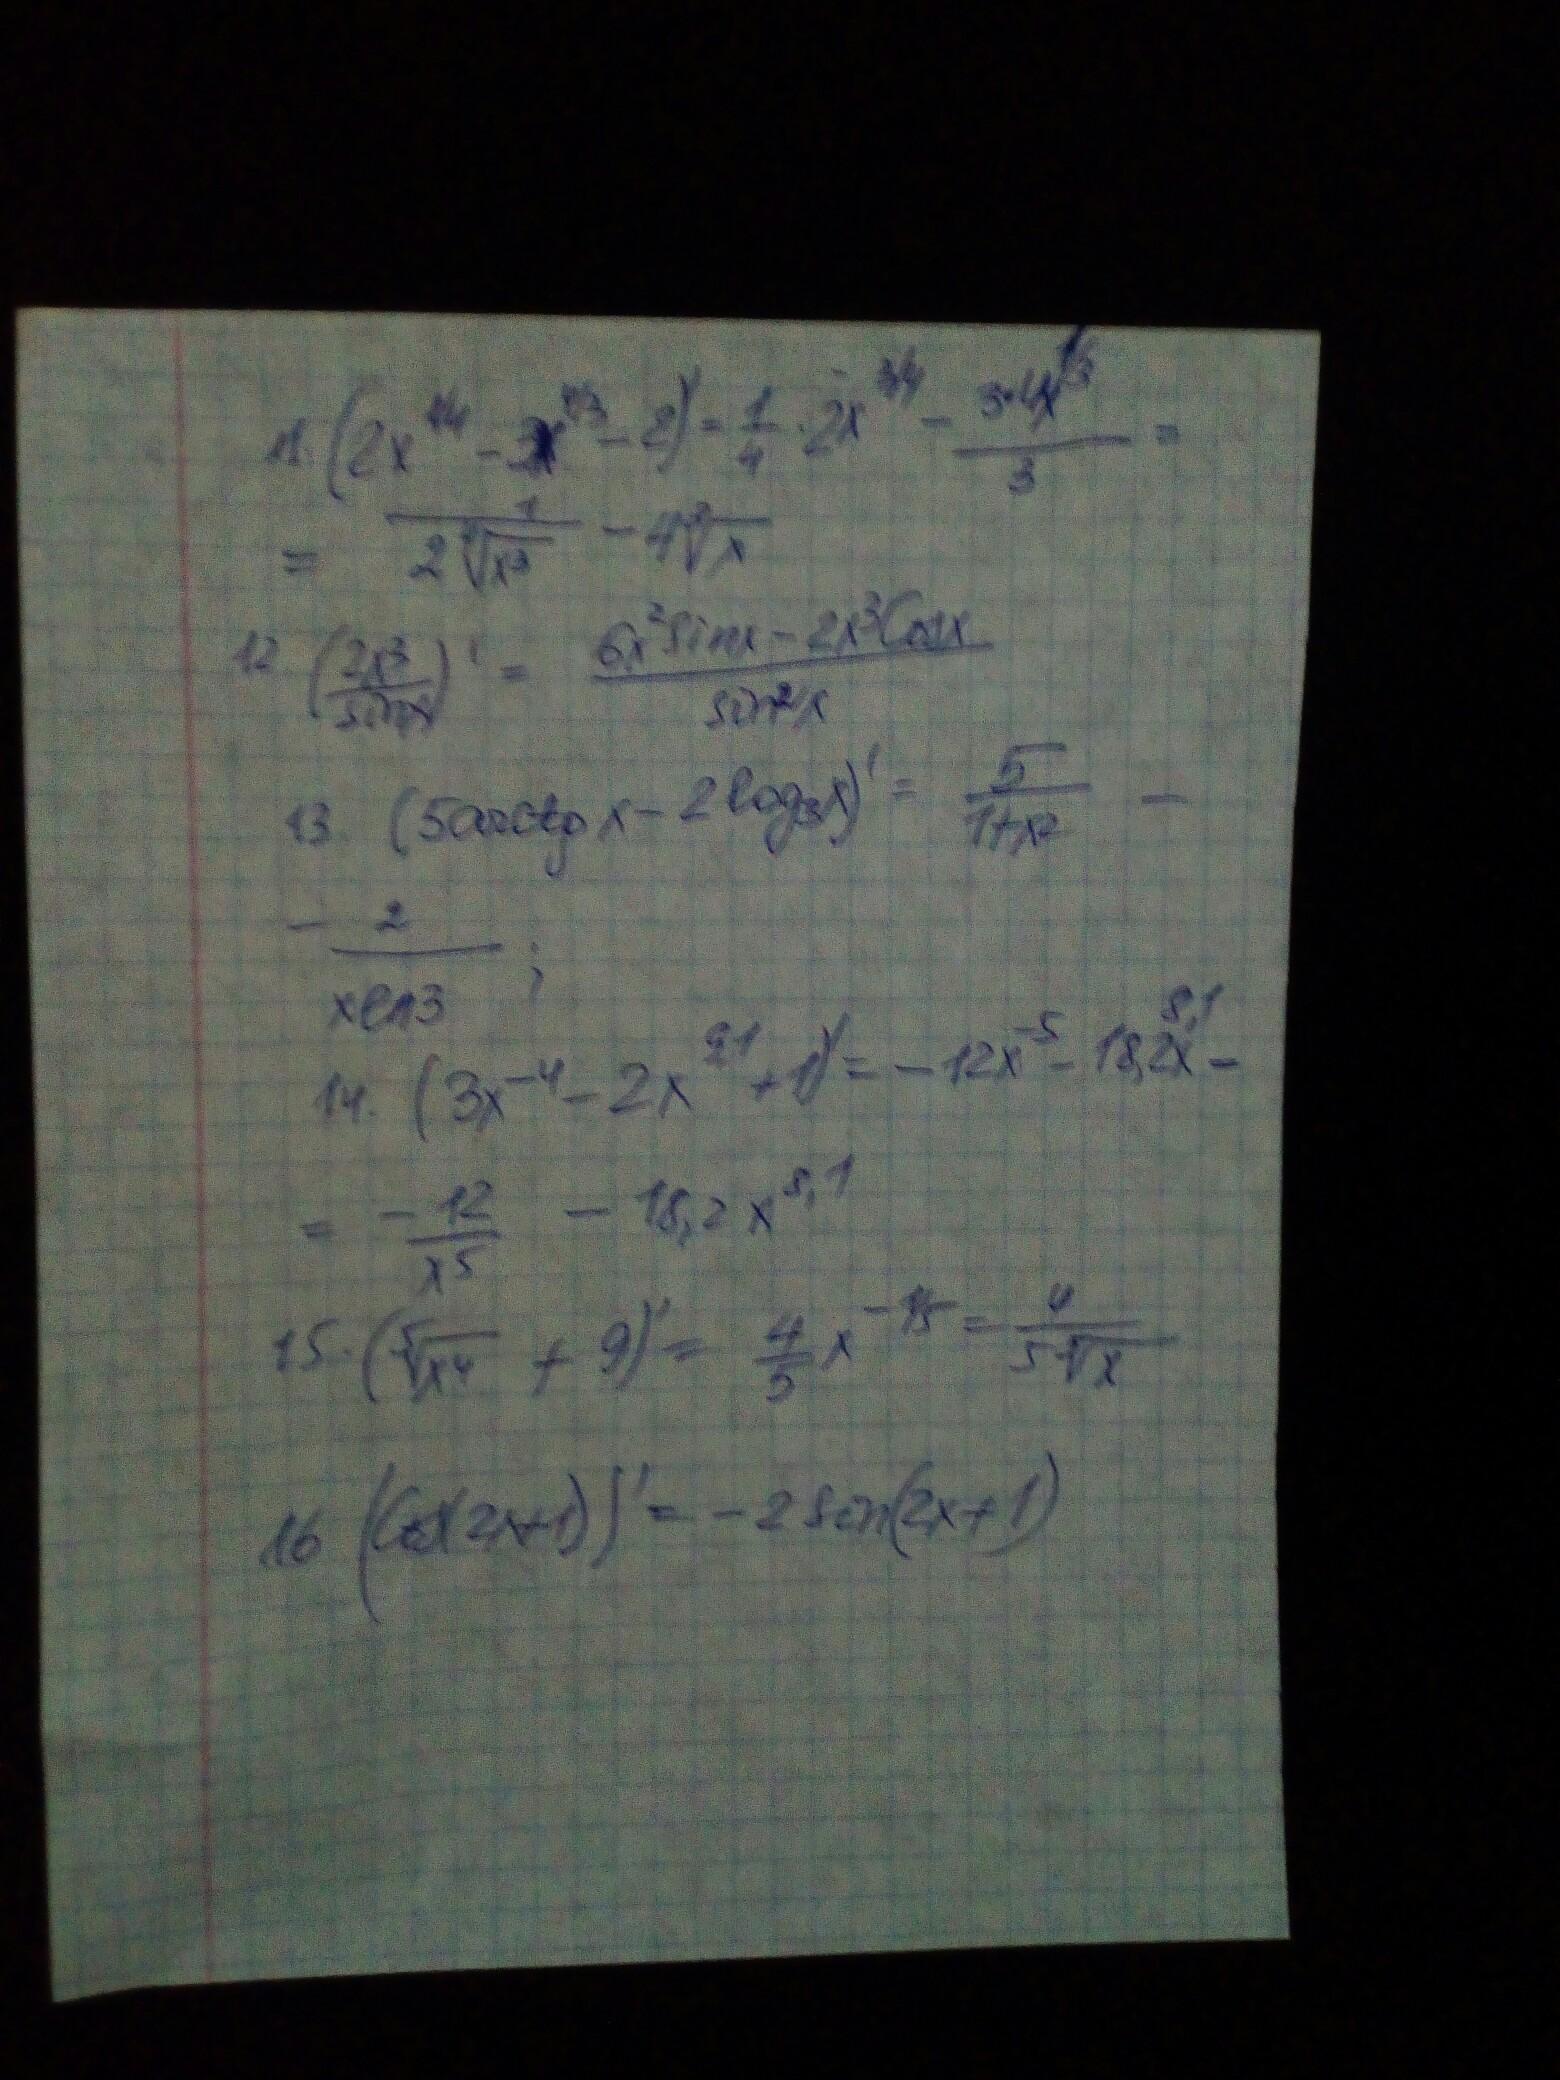 11. (2x^1/4 - 3x^4/3 - 2)' = 1/4 · 2x^-3/4 - 3·4x^1/3 / 3 =
= 1 / 2⁴√x³ - 4³√x
12 (2x³/sinx)' = 6x²sinx - 2x³Cosx / sin²x
13. (5arctg x - 2log₃x)' = 5 / 1+x² -
- 2 / xln3 ;
14. (3x^-4 - 2x^9,1 + 1)' = -12x^-5 - 18,2x^8,1 =
= -12 / x⁵ - 18,2x^8,1
15. (⁵√x⁴ + 9)' = 4/5 x^-1/5 = 4 / 5⁵√x
16 (Cos(2x+1))' = -2sin(2x+1)